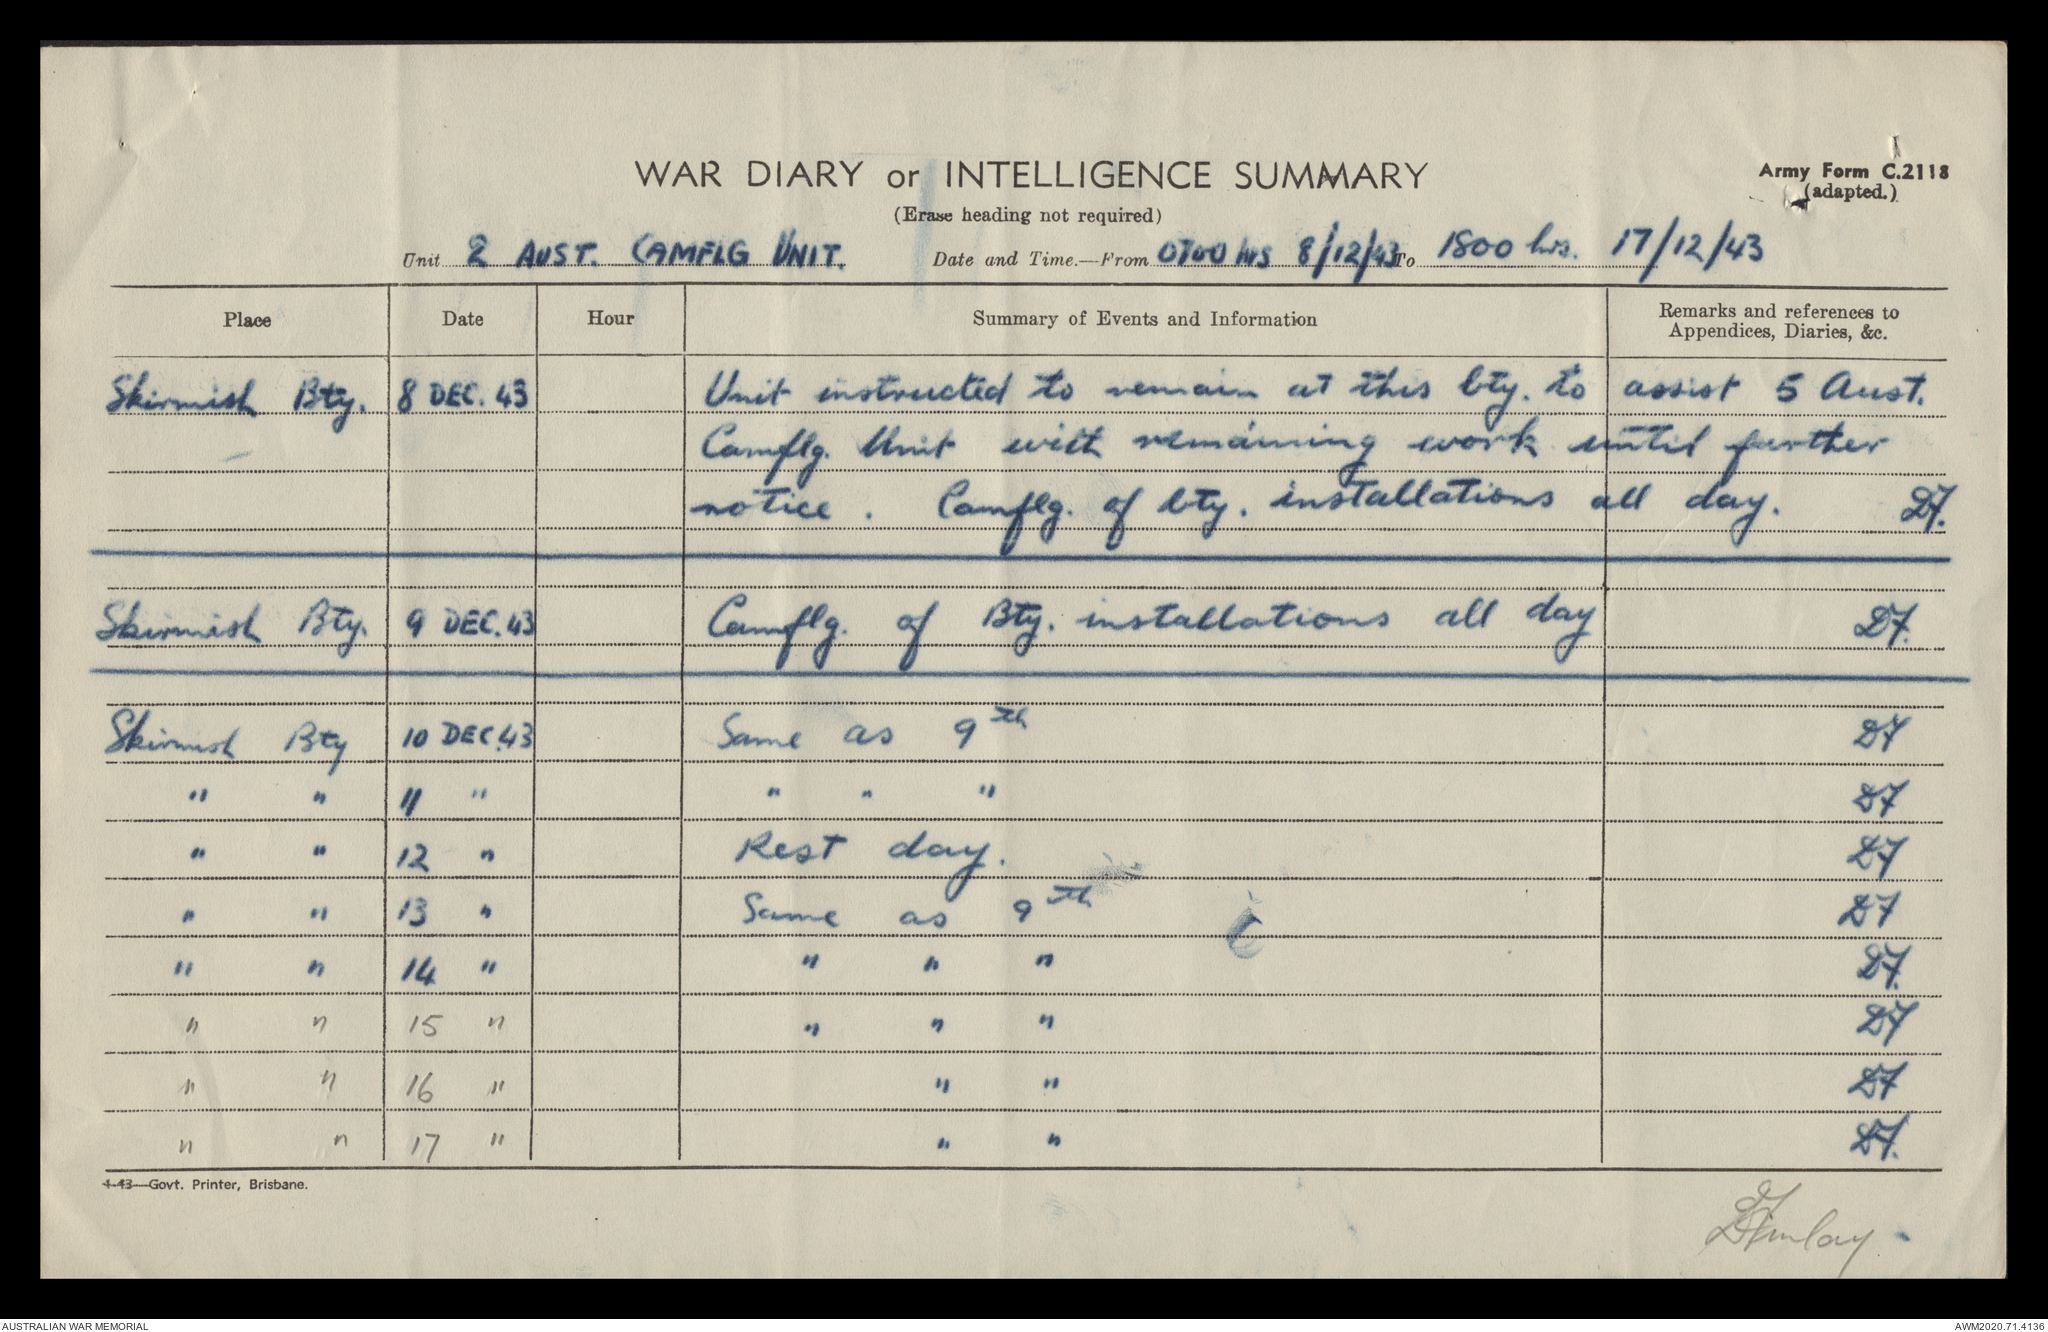 WAR DIARY or INTELLIGENCE SUMMARY
Army Form C.2118
(adapted.)
(Erase heading not required)
Unit 2 AUST. CAMFLG UNIT. Date and Time.—From 0700 hrs 8/12/43 To 1800 hrs. 17/12/43
Place Date Hour Summary of Events and Information Remarks and references to
Appendices, Diaries, &c.
Skirmish Bty. 8 DEC. 43 Unit instructed to remain at this bty. to assist 5 Aust.
Camflg. Unit with remaining work until further
notice. Camflg. of bty. installations all day. DF.
Skirmish Bty. 9 DEC. 43 Camflg. of Bty. installations all day DF.
Skirmish Bty 10 DEC. 43 Same as 9th DF
" " 11 " " " " DF
" " 12 " Rest day. DF
" " 13 " Same as 9th DF
" " 14 " " " " DF.
" " 15 " " " " DF
" " 16 " " " DF
" " 17 " " " DF.
4-43—Govt. Printer, Brisbane.
DFinlay
AUSTRALIAN WAR MEMORIAL AWM2020.71.4136